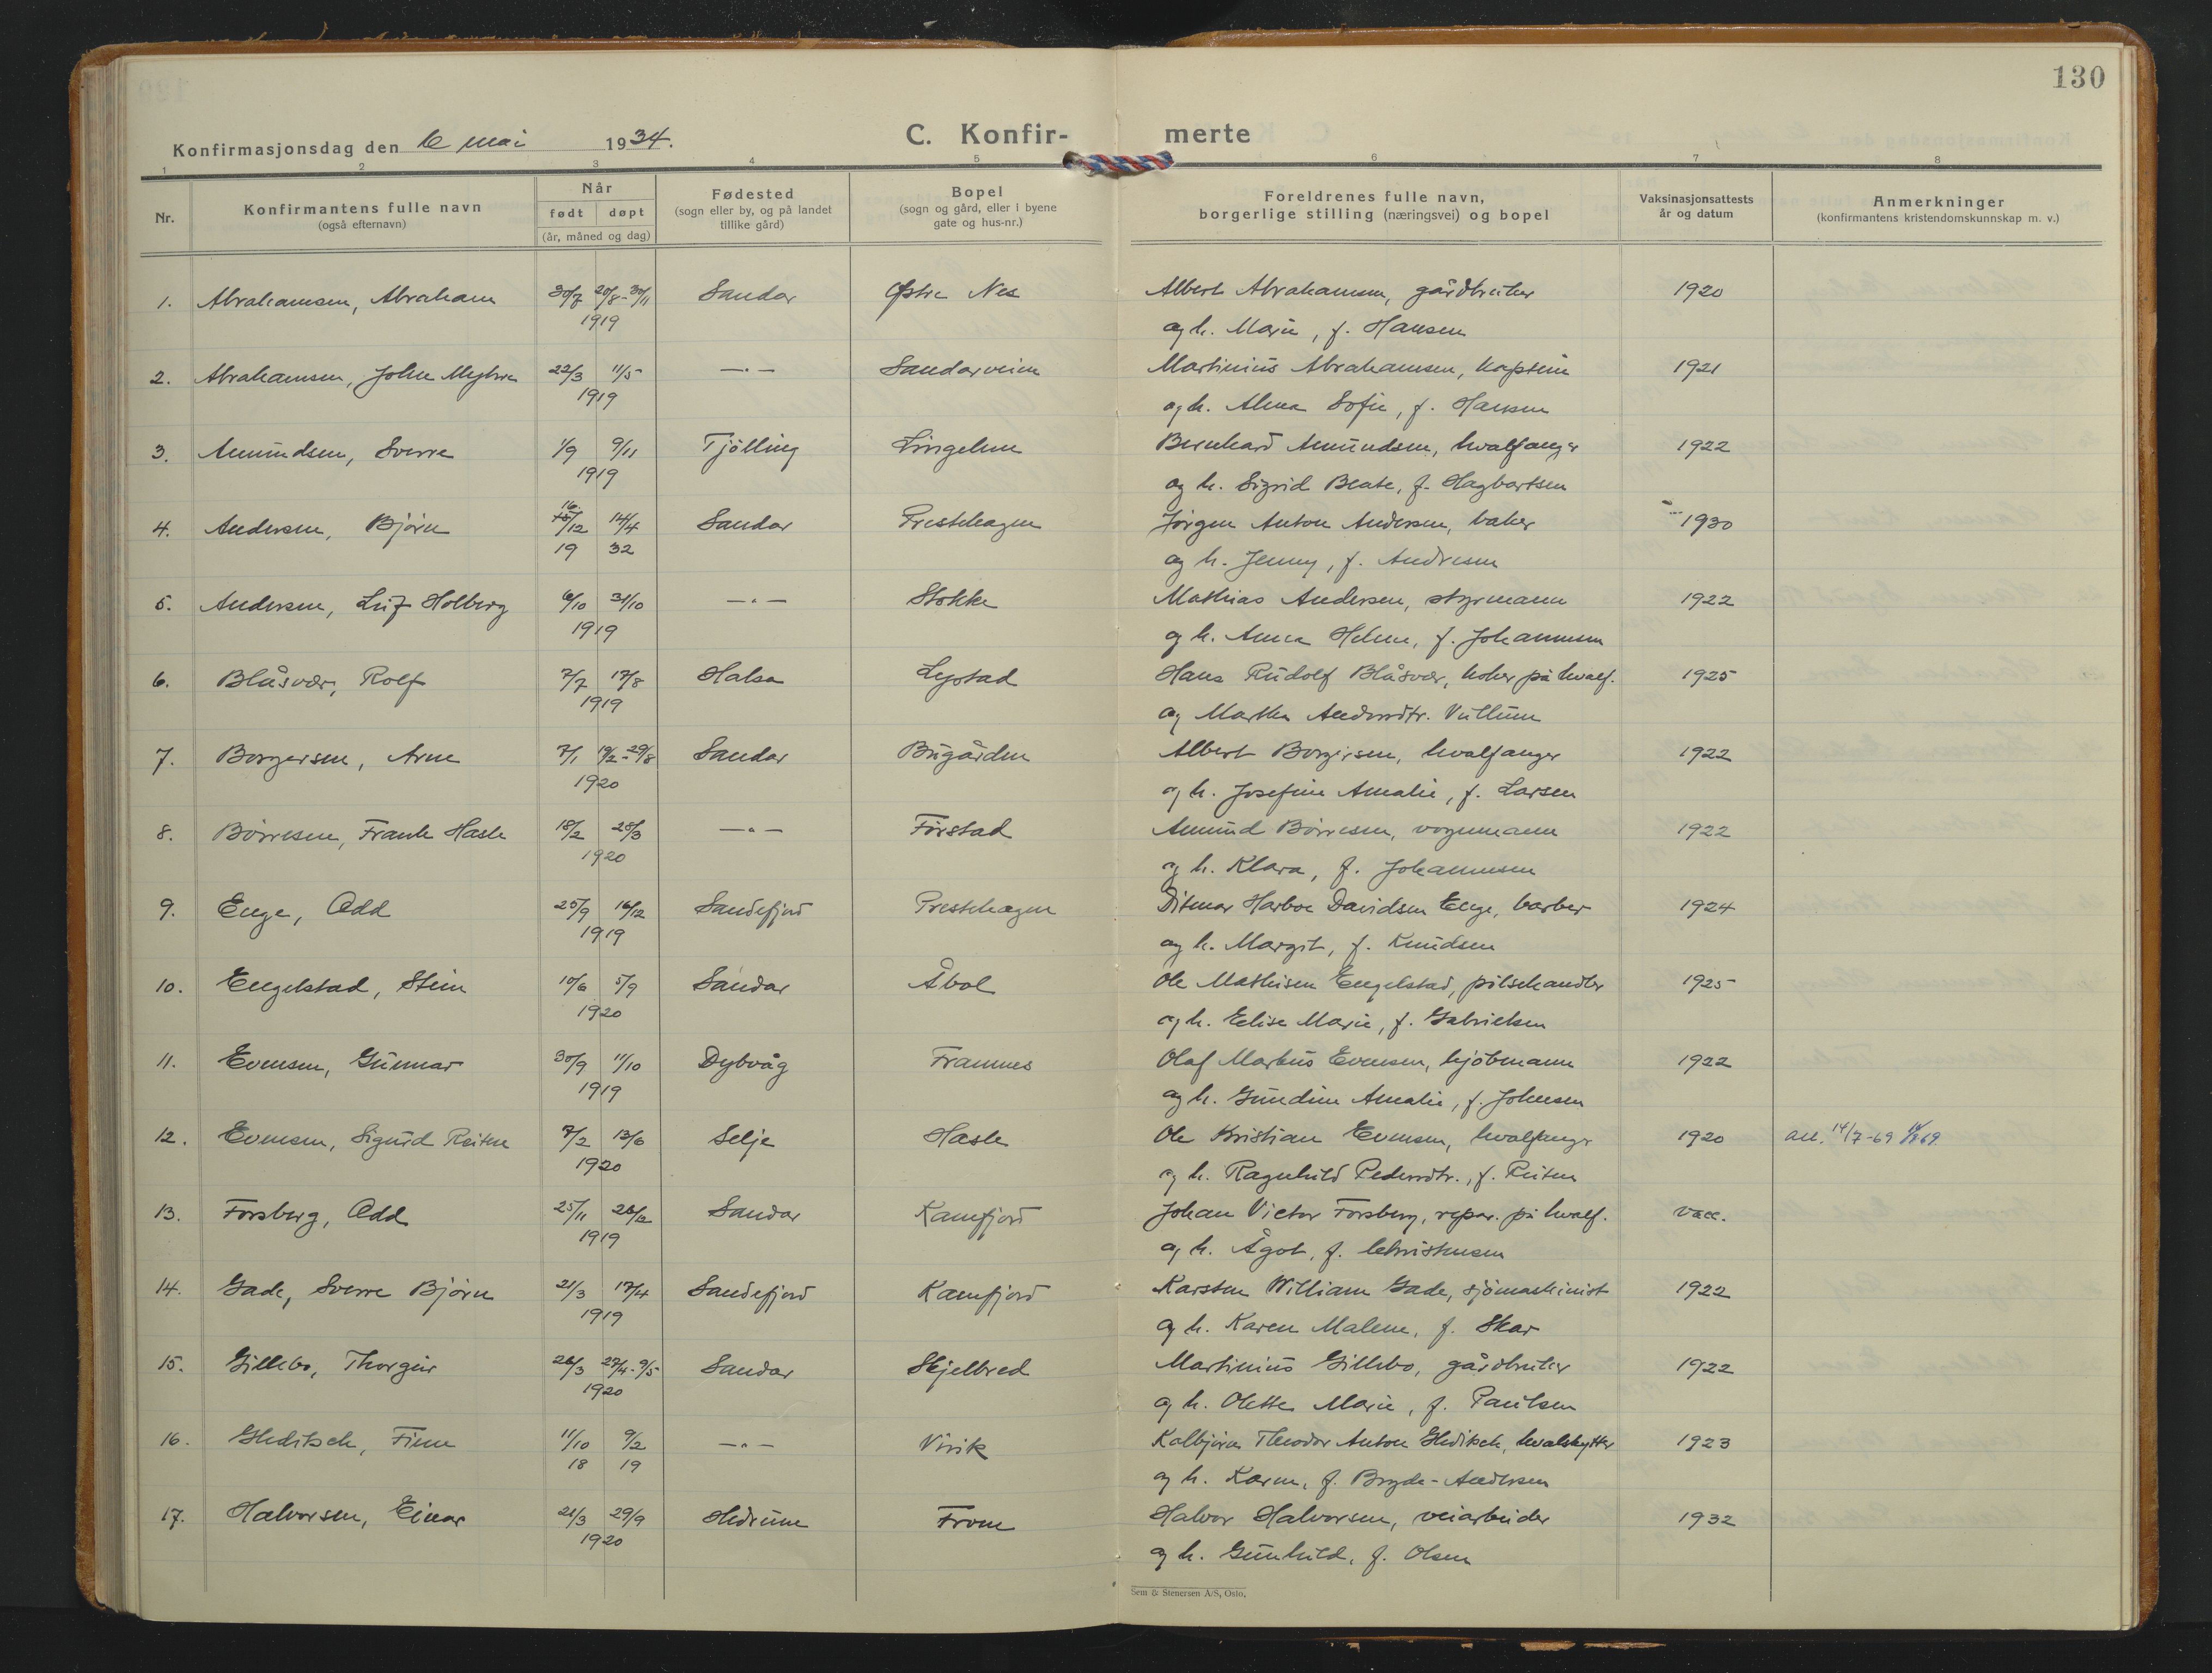 130
Konfirmasjonsdag den 6 mai 1934.
C. Konfir- merte
1 2 3 4 5 6 7 8
Nr. Konfirmantens fulle navn (også efternavn) Når født døpt (år, måned og dag) Fødested (sogn eller by, og på landet tillike gård) Bopel (sogn og gård, eller i byene gate og hus-nr.) Foreldrenes fulle navn, borgerlige stilling (næringsvei) og bopel Vaksinasjonsattests år og datum Anmerkninger (konfirmantens kristendomskunnskap m. v.)
1. Abrahamsen, Abraham 30/7 20/8-30/11 Sandar Østre Nes Albert Abrahamsen, gårdbruker 1920
1919 og h. Marie, f. Hansen
2. Abrahamsen, John Myhre 22/3 11/5 —"— Sandarveien Martinius Abrahamsen, kaptein 1921
1919 og h. Alma Sofie, f. Hansen
3. Amundsen, Sverre 1/9 9/11 Tjølling Lingelem Bernhard Amundsen, hvalfanger 1922
1919 og h. Sigrid Beate, f. Hagbartsen
4. Andersen, Bjørn 16/12 14/4 Sandar Prestehagen Jørgen Anton Andersen, baker 1930
19 32 og h. Jenny, f. Andresen
5. Andersen, Leif Holberg 6/10 31/10 —"— Stokke Mathias Andersen, styrmann 1922
1919 og h. Anna Helene, f. Johannesen
6. Blåsvær, Rolf 7/7 17/8 Halsa Lystad Hans Rudolf Blåsvær, koker på hvalf. 1925
1919 og Martha Andersdtr. Vullum
7. Borgersen, Arne 7/1 19/2-29/8 Sandar Bugården Albert Borgersen, hvalfanger 1922
1920 og h. Josefine Amalie, f. Larsen
8. Børresen, Frank Hasle 18/2 28/3 —"— Førstad Amund Børresen, vognmann 1922
1920 og h. Klara, f. Johannesen
9. Enge, Odd 25/9 16/12 Sandefjord Prestehagen Ditmar Harboe Davidsen Enge, barber 1924
1919 og h. Margit, f. Knudsen
10. Engelstad, Stein 10/6 5/9 Sandar Åbol Ole Mathisen Engelstad, pølsehandler 1925
1920 og h. Elise Marie, f. Gabrielsen
11. Evensen, Gunnar 30/9 11/10 Dybvåg Framnes Olaf Markus Evensen, kjøbmann 1922
1919 og h. Gundine Amalie, f. Johnsen
12. Evensen, Sigurd Reiten 7/2 13/6 Selje Hasle Ole Kristian Evensen, hvalfanger 1920 14/7-69
1920 og h. Ragnhild Pedersdtr., f. Reiten
13. Forsberg, Odd 25/11 26/12 Sandar Kamfjord Johan Victor Forsberg, repar. på hvalf. vacc.
1919 og h. Ågot, f. Christensen
14. Gade, Sverre Bjørn 21/3 17/4 Sandefjord Kamfjord Karsten William Gade, sjømaskinist 1922
1919 og h. Karen Malene, f. Skar
15. Gillebo, Thorgeir 26/3 27/4-9/5 Sandar Skjelbred Martinius Gillebo, gårdbruker 1922
1920 og h. Olette Marie, f. Paulsen
16. Gleditsch, Finn 11/10 9/2 —"— Virik Kolbjørn Theodor Anton Gleditsch, hvalskytter 1923
18 19 og h. Karen, f. Bryde-Andersen
17. Halvorsen, Einar 21/3 29/9 Hedrum From Halvor Halvorsen, veiarbeider 1932
1920 og h. Gunhild, f. Olsen
Sem & Stenersen A/S, Oslo.